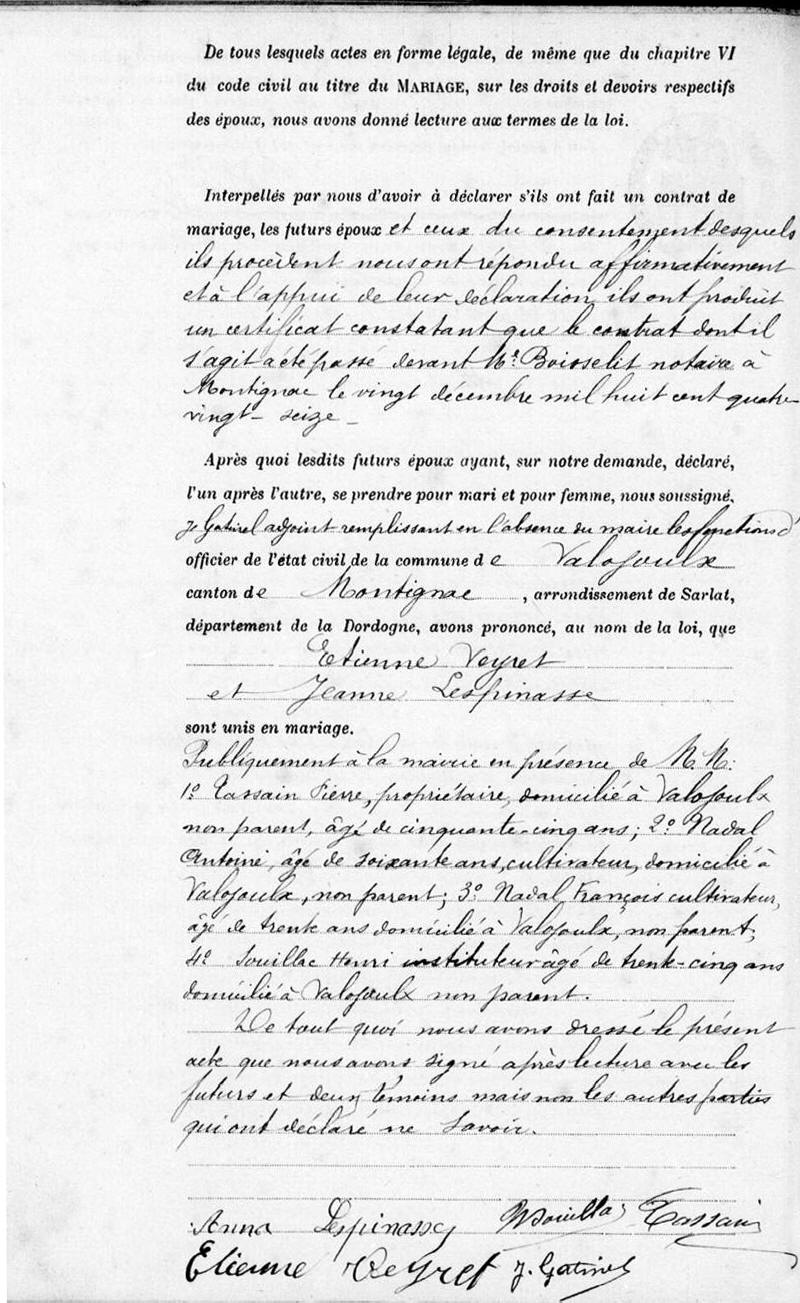 De tous lesquels actes en forme légale, de même que du chapitre VI
du code civil au titre du MARIAGE, sur les droits et devoirs respectifs
des époux, nous avons donné lecture aux termes de la loi.
Interpellés par nous d'avoir à déclarer s'ils ont fait un contrat de
mariage, les futurs époux et ceux du consentement desquels
ils procèdent nous ont répondu affirmativement
et à l'appui de leur déclaration, ils ont produit
un certificat constatant que le contrat dont il
s'agit a été passé devant Me Boisselit notaire à
Montignac le vingt décembre mil huit cent quatre
vingt-seize
Après quoi lesdits futurs époux ayant, sur notre demande, déclaré,
l'un après l'autre, se prendre pour mari et pour femme, nous soussigné,
J. Gatinel adjoint remplissant en l'absence du maire les fonctions d'
officier de l'état civil de la commune de Valojoulx
canton de Montignac, arrondissement de Sarlat,
département de la Dordogne, avons prononcé, au nom de la loi, que
Etienne Veyret
et Jeanne Lespinasse
sont unis en mariage.
Publiquement à la mairie en présence de M.M:
1º Tassain Pierre, propriétaire, domicilié à Valojoulx
non parent, âgé de cinquante-cinq ans; 2º Nadal
Antoine, âgé de soixante ans, cultivateur, domicilié à
Valojoulx, non parent; 3º Nadal François cultivateur,
âgé de trente ans domicilié à Valojoulx, non parent;
4º Souillac Henri instituteur âgé de trente-cinq ans
domicilié à Valojoulx non parent.
De tout quoi nous avons dressé le présent
acte que nous avons signé après lecture avec les
futurs et deux témoins mais non les autres parties
qui ont déclaré ne savoir.
Anna Lespinasse Souillac Tassain
Etienne Veyret J. Gatinel